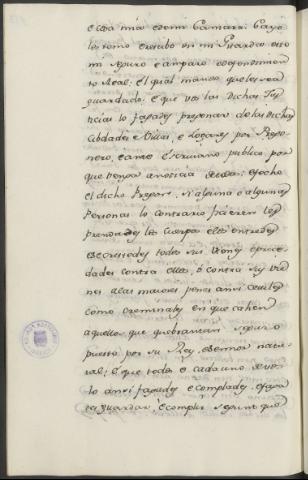 e esta mia e de mi Camara: Ca yo
los tomo e recibo en mi Guarda e so
mi seguro e amparo e defendimien-
to Real, el qual mando que les sea
guardado: e que vos las dichas Jus-
ticias lo fagades pregonar de las dichas
Cibdades e Villas, e Logares por Prego-
nero, e ante Escrivano publico por-
que venga a noticia de todos: e fecho
el dicho Pregon, si alguna o algunas
personas lo contrario ficieren les
prendades los cuerpos e les entredes
e secrestedes todos sus bienes e proce-
dades contra ellos, o contra sus bie-
nes a las maiores penas ansi ceviles
como creminales en que cahen
aquellos que quebrantan seguro
puesto por su Rey, e Señor natu-
ral: e que todos e cada uno de vos
lo ansi fagades e complades, e faga-
des guardar e complir segunt que